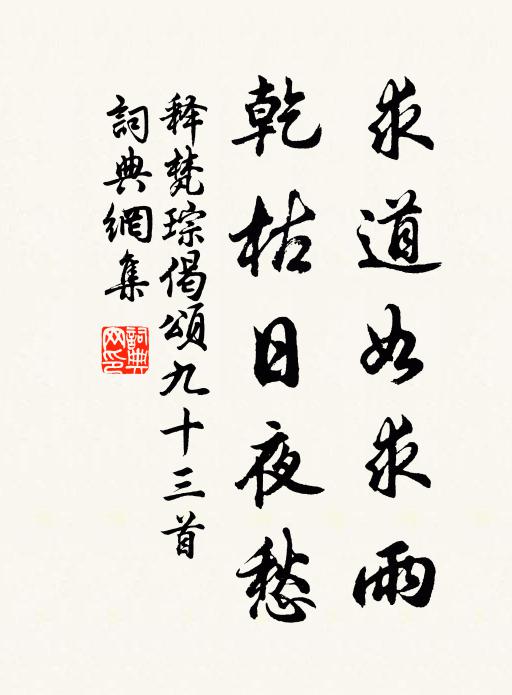 求道如求雨
乾枯日夜愁
释梵琮偈頌九十三首
詞典網集
詞典網印